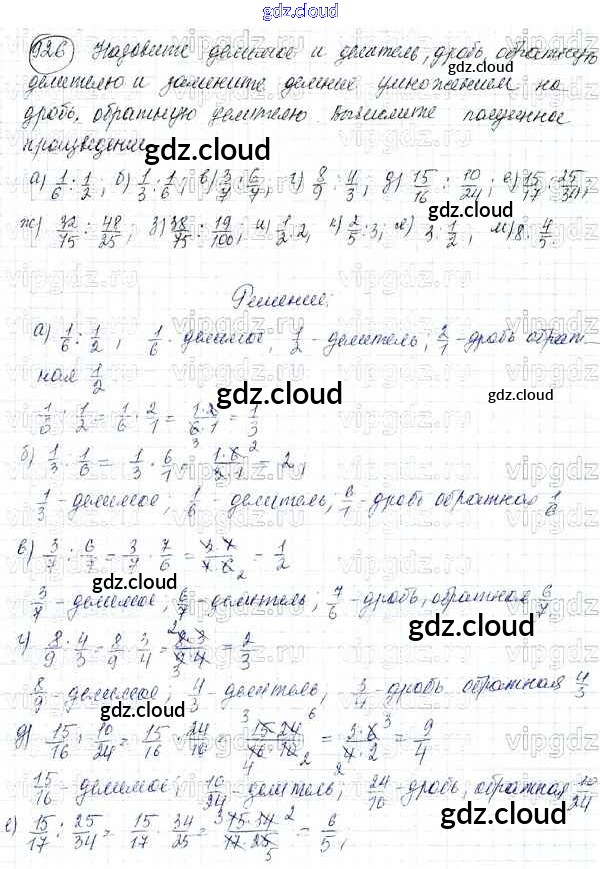 gdz.cloud
926 Назовите делимое и делитель, дробь, обратную
делителю и замените деление умножением на
дробь, обратную делителю. Вычислите полученное
произведение.
а) 1/6 : 1/2, б) 1/3 : 1/6, в) 3/7 : 6/7, г) 8/9 : 4/3, д) 15/16 : 10/24; е) 15/17 : 25/34;
ж) 72/75 : 48/25, з) 38/75 : 19/100, и) 1/2 : 2, к) 2/5 : 3, л) 3 : 1/2, м) 8 : 4/5.
Решение:
а) 1/6 : 1/2, 1/6 - делимое, 1/2 - делитель; 2/1 - дробь обрат-
ная 1/2
1/6 : 1/2 = 1/6 · 2/1 = 1·2/6·1 = 1/3
б) 1/3 : 1/6 = 1/3 · 6/1 = 1·6/3·1 = 2,
1/3 - делимое; 1/6 - делитель, 6/1 - дробь обратная 1/6
в) 3/7 : 6/7 = 3/7 · 7/6 = 3·7/7·6 = 1/2
3/7 - делимое; 6/7 - делитель; 7/6 - дробь, обратная 6/7
г) 8/9 : 4/3 = 8/9 · 3/4 = 8·3/9·4 = 2/3
8/9 - делимое; 4/3 - делитель, 3/4 - дробь обратная 4/3
д) 15/16 : 10/24 = 15/16 · 24/10 = 15·24/16·10 = 3·6/4·2 = 9/4
15/16 - делимое; 10/24 - делитель; 24/10 - дробь, обратная 10/24
е) 15/17 : 25/34 = 15/17 · 34/25 = 15·34/17·25 = 6/5;